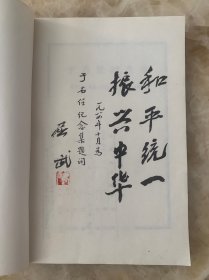 和平统一
振兴中华
一九八六年十月为
于右任纪念集题词
屈武